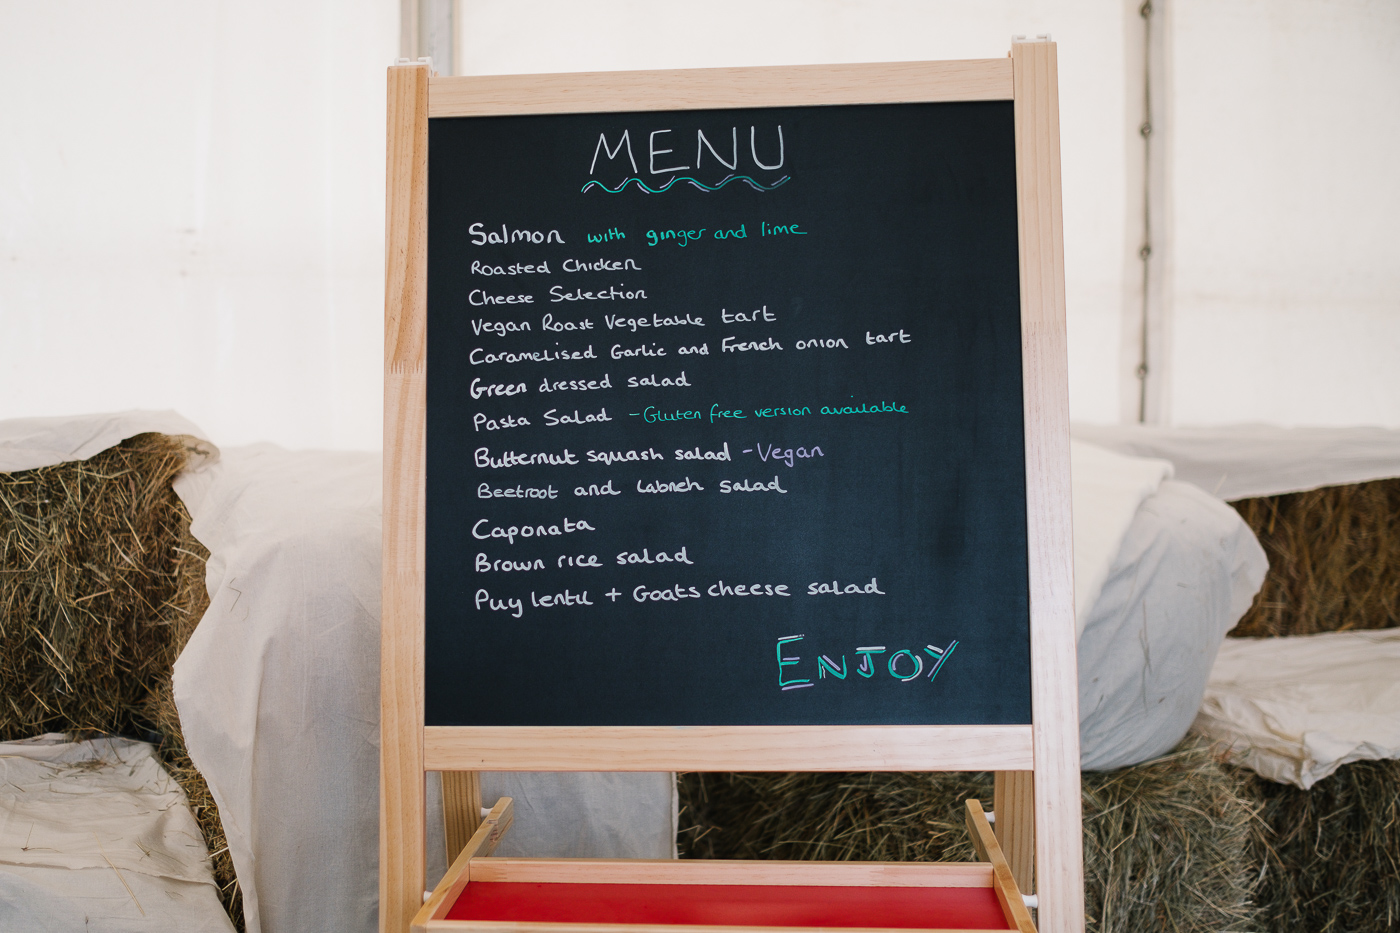 MENU
Salmon with ginger and lime
Roasted Chicken
Cheese Selection
Vegan Roast Vegetable tart
Caramelised Garlic and French onion tart
Green dressed salad
Pasta Salad - Gluten free version available
Butternut squash salad - Vegan
Beetroot and labneh salad
Caponata
Brown rice salad
Puy lentil + Goats cheese salad
ENJOY